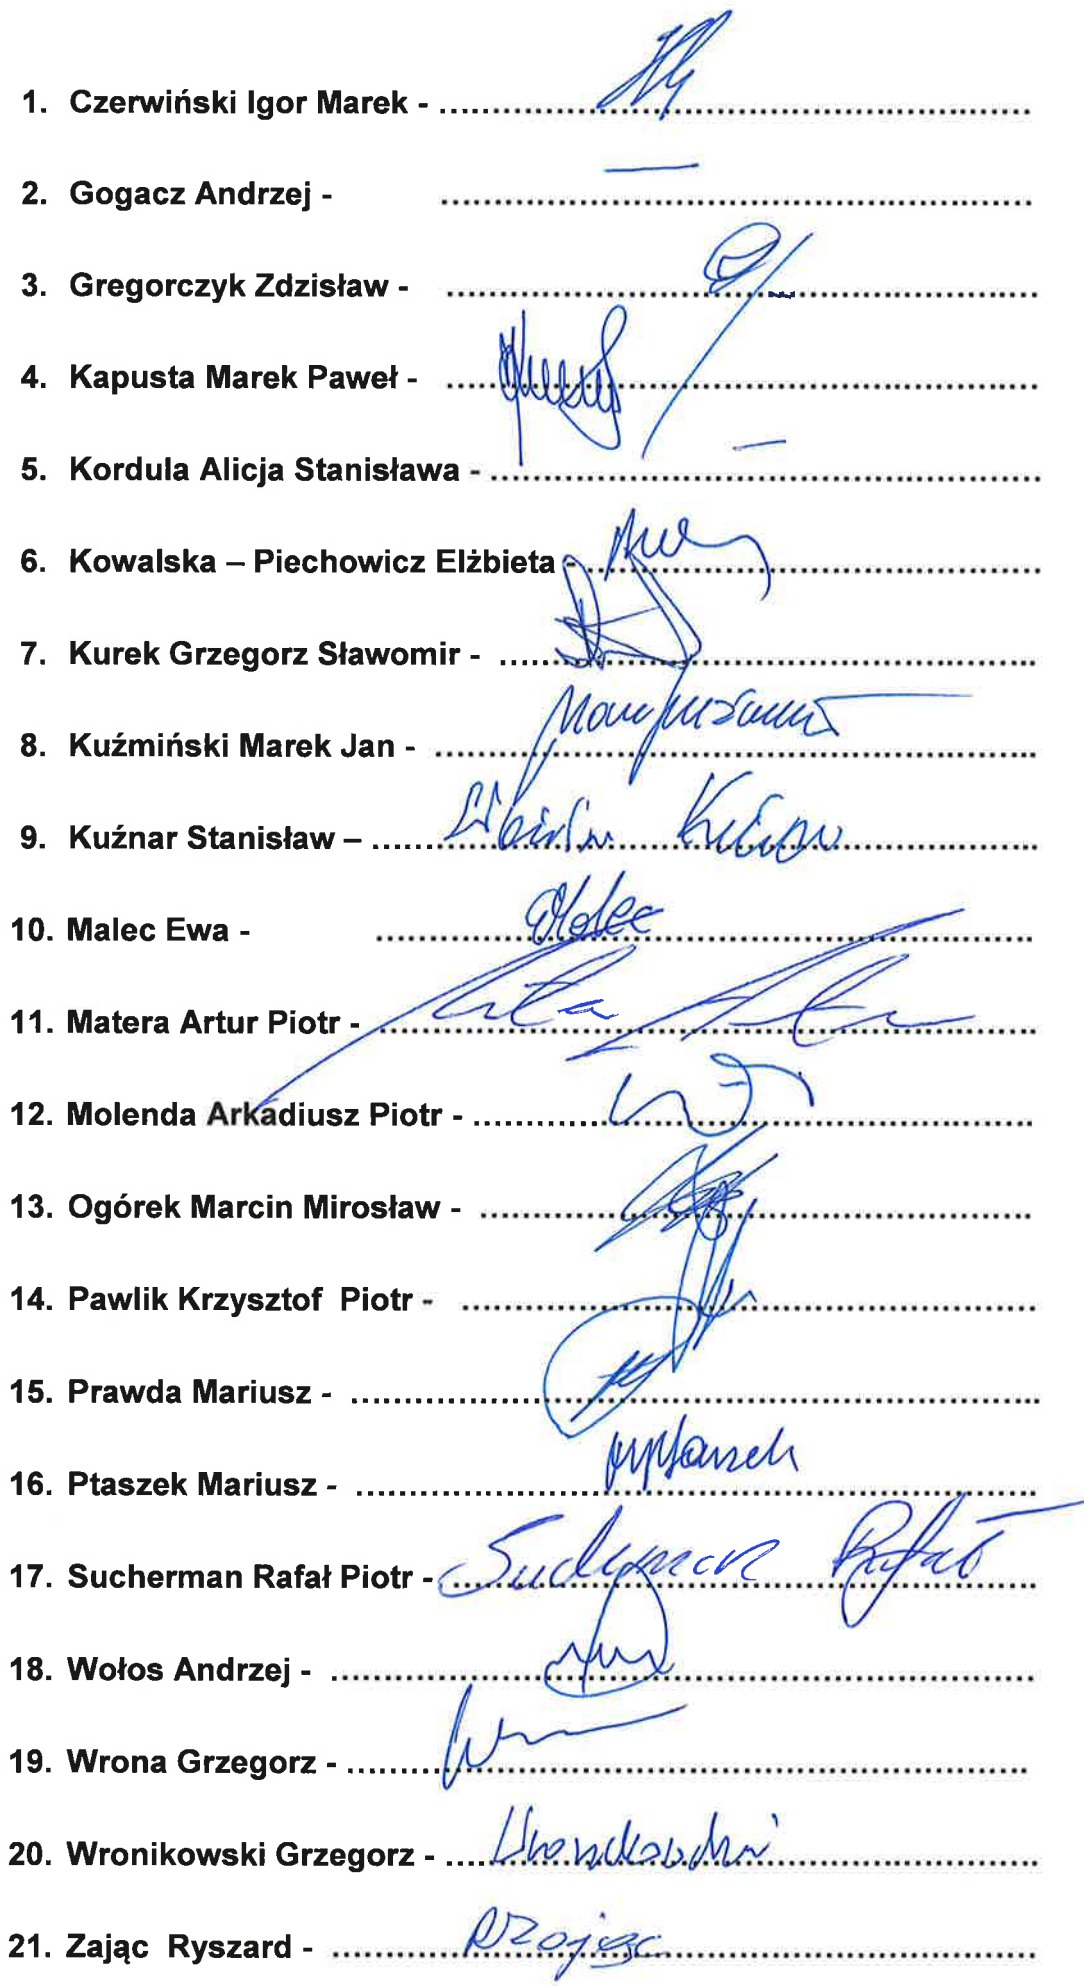 1. Czerwiński Igor Marek - ..........
2. Gogacz Andrzej - ..........
3. Gregorczyk Zdzisław - ..........
4. Kapusta Marek Paweł - ..........
5. Kordula Alicja Stanisława - ..........
6. Kowalska – Piechowicz Elżbieta - ..........
7. Kurek Grzegorz Sławomir - ..........
8. Kuźmiński Marek Jan - ..........
9. Kuźnar Stanisław – ..........
10. Malec Ewa - .......... Malec
11. Matera Artur Piotr - ..........
12. Molenda Arkadiusz Piotr - ..........
13. Ogórek Marcin Mirosław - ..........
14. Pawlik Krzysztof Piotr - ..........
15. Prawda Mariusz - ..........
16. Ptaszek Mariusz - .......... Ptaszek
17. Sucherman Rafał Piotr - .......... Sucherman Rafał
18. Wołos Andrzej - ..........
19. Wrona Grzegorz - ..........
20. Wronikowski Grzegorz - .......... Wronikowski
21. Zając Ryszard - .......... RZając